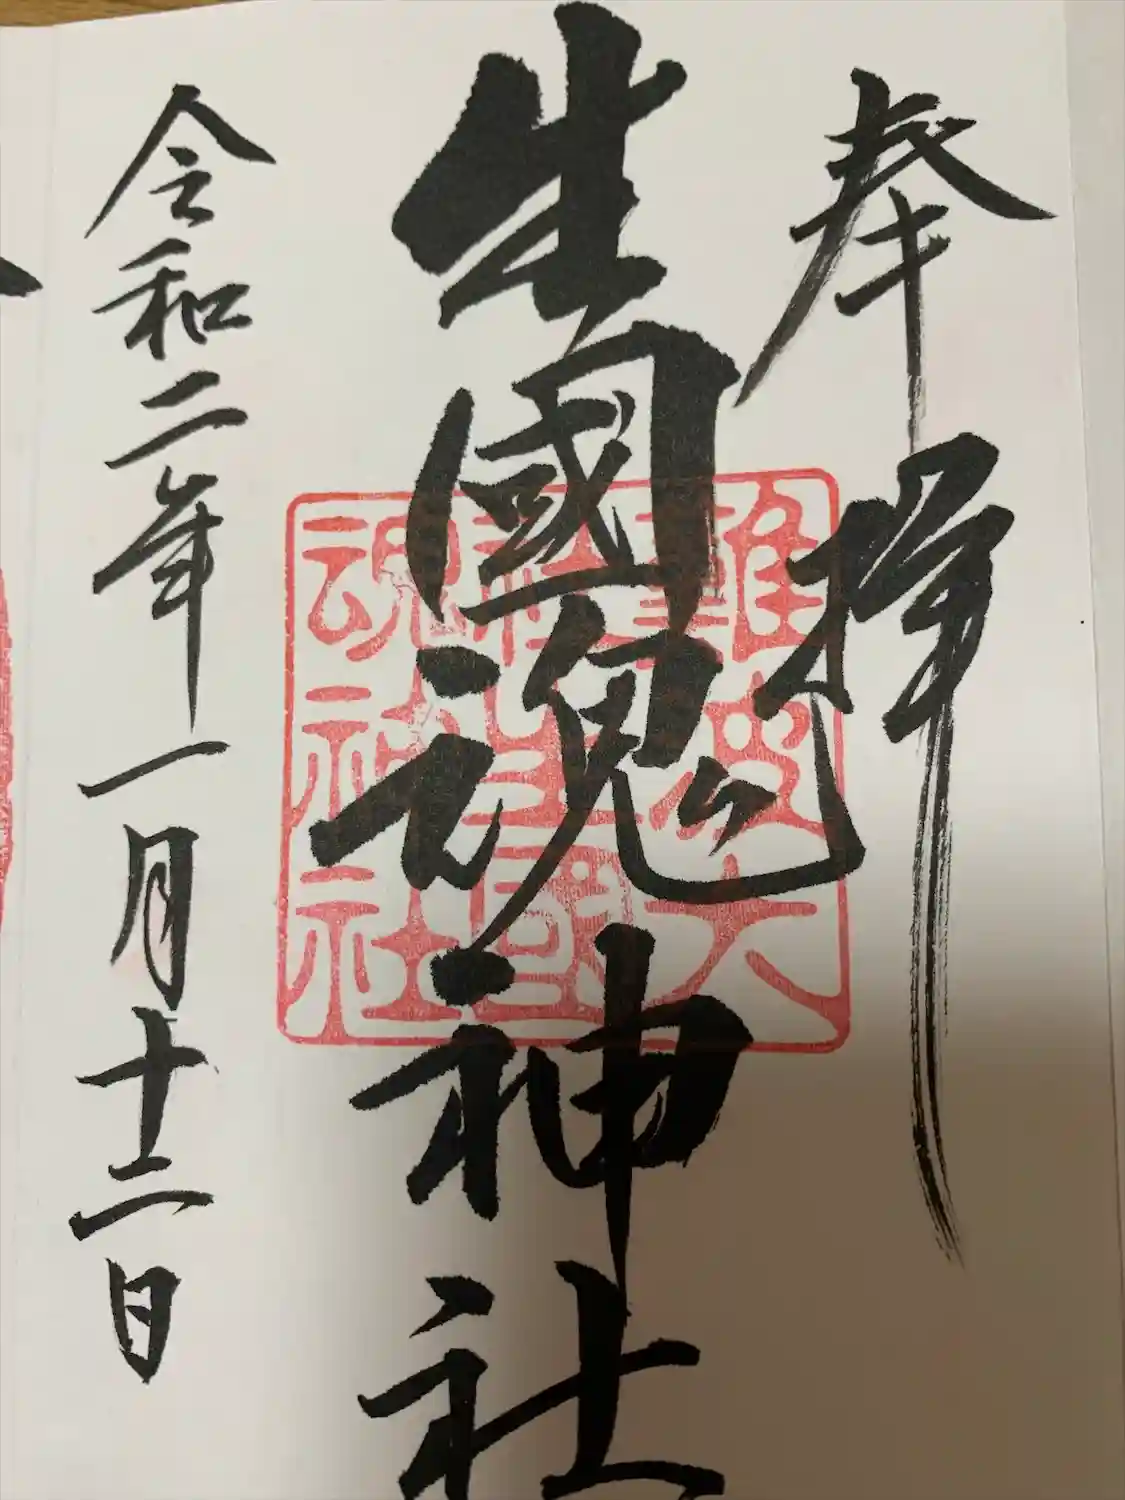 奉拝
生國魂神社
難波大
社生國
魂神社
令和二年一月十二日